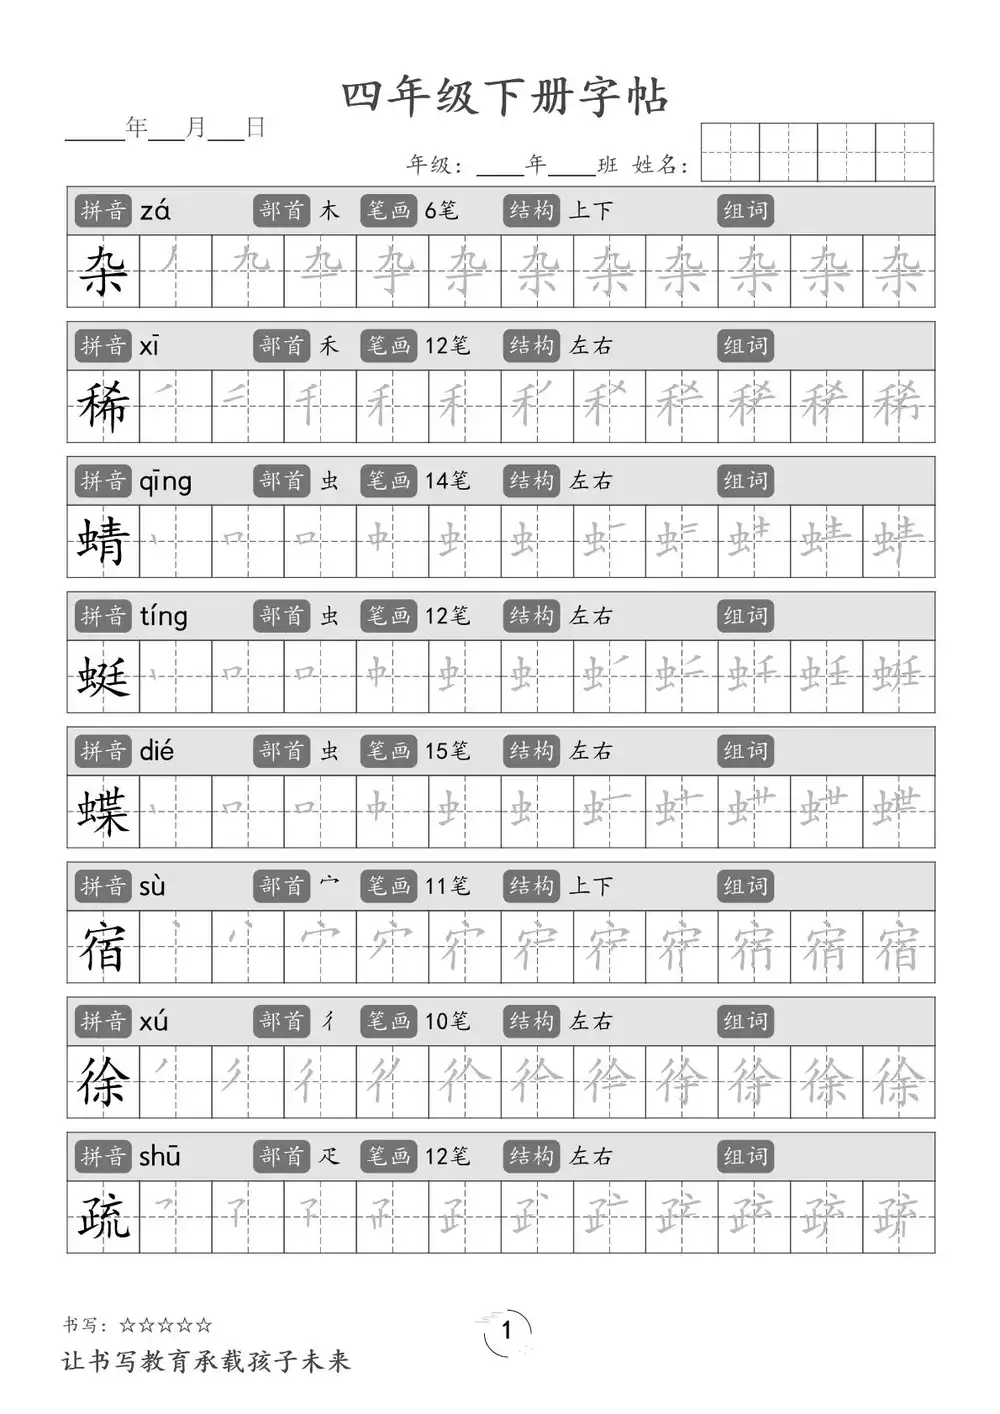 四年级下册字帖
____年__月__日
年级：____年____班 姓名：
拼音 zá 部首 木 笔画 6笔 结构 上下 组词
杂
拼音 xī 部首 禾 笔画 12笔 结构 左右 组词
稀
拼音 qīng 部首 虫 笔画 14笔 结构 左右 组词
蜻
拼音 tíng 部首 虫 笔画 12笔 结构 左右 组词
蜓
拼音 dié 部首 虫 笔画 15笔 结构 左右 组词
蝶
拼音 sù 部首 宀 笔画 11笔 结构 上下 组词
宿
拼音 xú 部首 彳 笔画 10笔 结构 左右 组词
徐
拼音 shū 部首 疋 笔画 12笔 结构 左右 组词
疏
书写：☆☆☆☆☆
让书写教育承载孩子未来
1